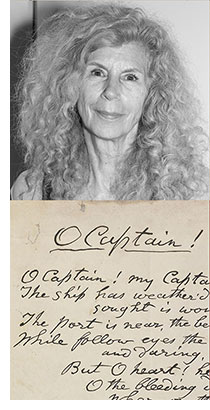 O Captain!
O Captain! my Capta
The ship has weather'd
sought is won
The port is near, the be
While follow eyes, the
and daring,
But O heart! he
O the bleeding d